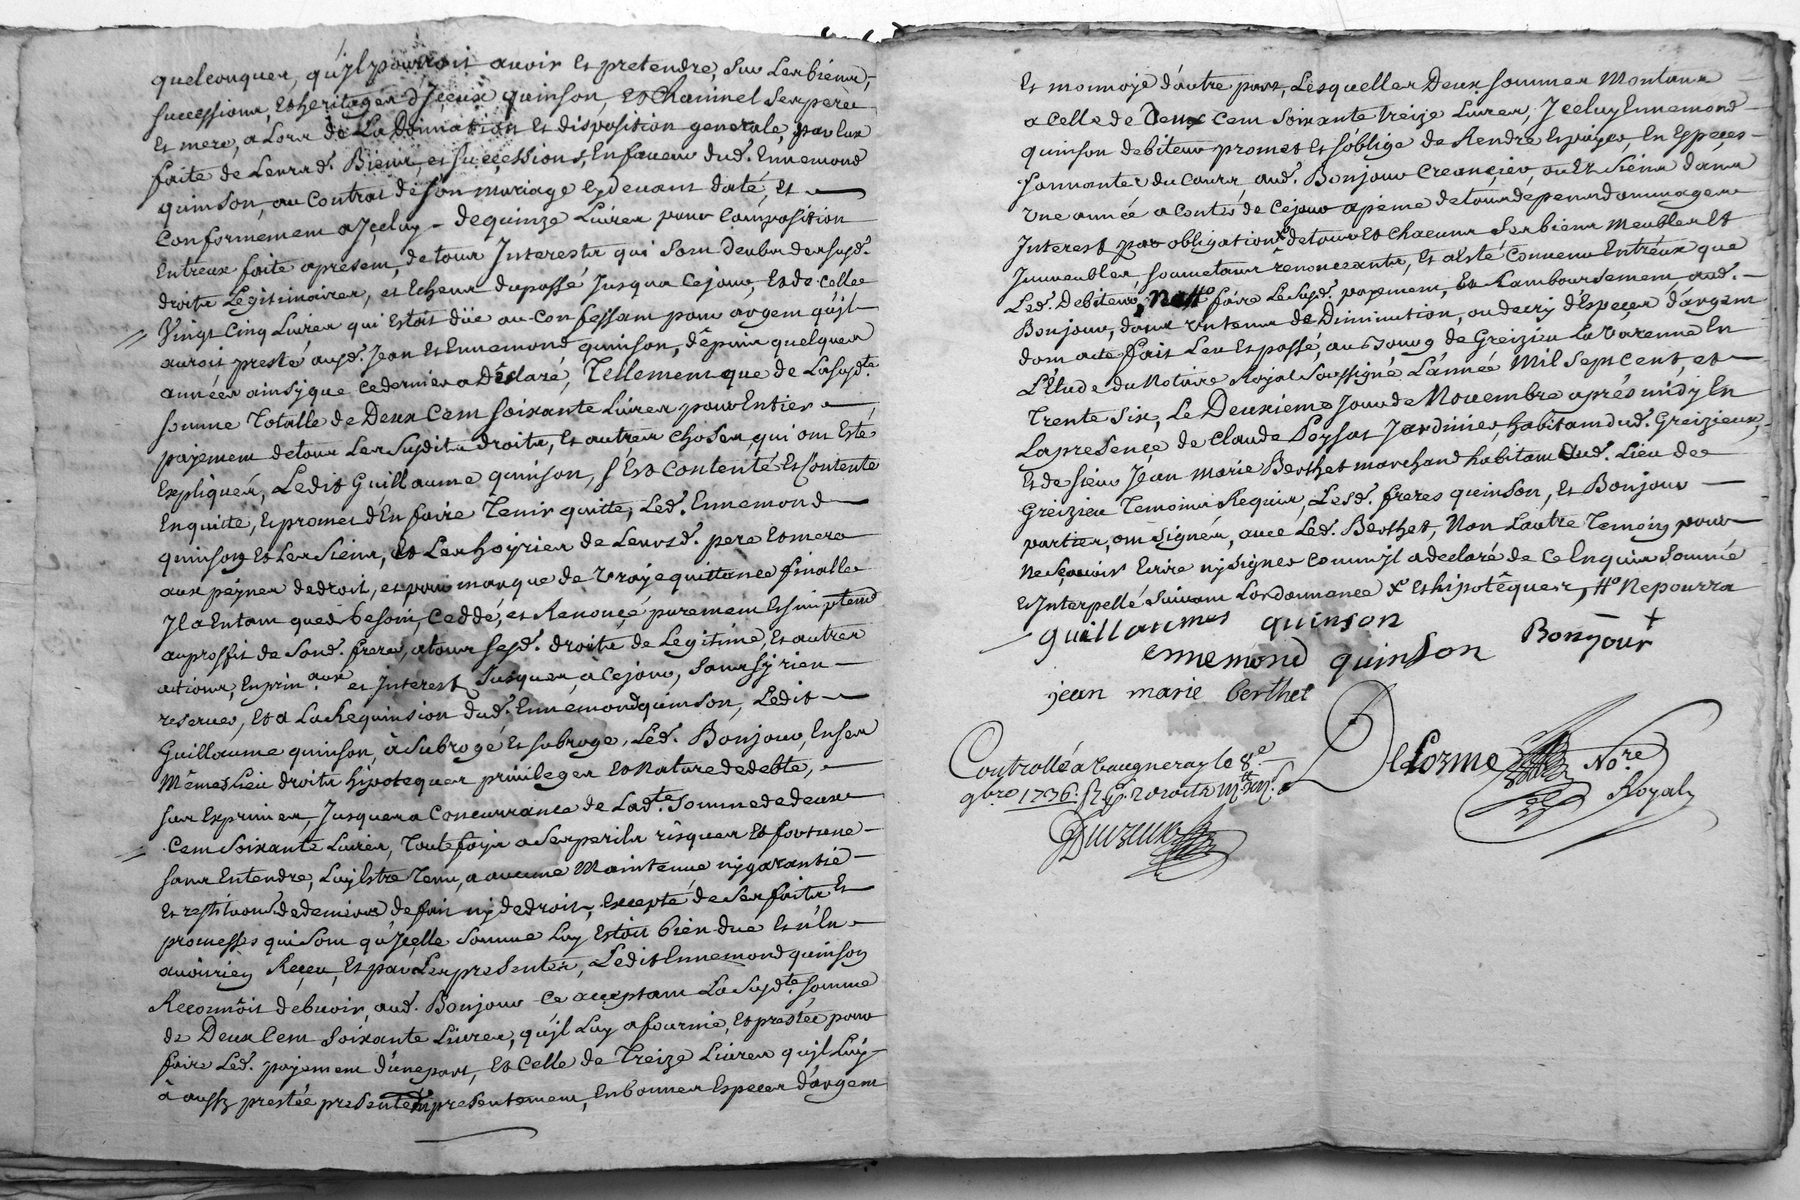 quelconques, qu'jl pourroit avoir et pretendre, sur les biens,
successions, et heritages d'Jceux quinson, et Chaninel ses pere
et mere, a Lors de La Donnation et disposition generale, par eux
faite de Leursd. Biens, et successions, En faveur dud. Ennemond
quinson, au Contrat de son mariage Cydevant daté, et
Conformement a Jceluy - de quinze Livres pour Composition
Entreux faite apresent, de tous Interests qui sont deubs desusd.
droits Legitimaires, et Echeus du passé Jusqua Cejour, et de celle
Vingt Cinq Livres qui Estoit düe au Confessant pour argent qu'jl
auroit presté ausd. Jean et Ennemond quinson, dépuis quelques
années ainsy que Ce dernier a Déclaré, Tellement que de La susd.te
somme Totalle de Deux Cent soixante Livres pour Entier
payement de tous Les susdits droits, et autres choses, qui ont Esté
Expliqués, Ledit Guillaume quinson, s'Est Contenté et Contente
En quitte, et promet d'En faire Tenir quitte, Led. Ennemond
quinson et Les siens, et Les hoyries de Leursd. pere et mere
aux peynes de droit, et pour marque de Vraye quittance finalle
Jl a Entant que de besoin, Ceddé, et Renonçé purement et simplem.t
au proffit de Sond. frere, a tous sesd. droits de Legitime, et autres
actions, En prin.aux et Interest Jusques, a Cejour, sans sy rien
reserver, et a La Requisition dud. Ennemond quinson, Ledit
Guillaume quinson, à subrogé et subroge, Led. Bonjour, En ses
Mêmes Lieu droits hipoteques privileges et Nature de debte,
sus Exprimer, Jusques a Concurrance de Lad.te Somme de deux
Cent Soixante Livres, Toutefois a ses perils risques et fortune
sans Entendre, Luy Estre Tenu, a aucune Maintenue ny garantie
et restitution de deniers de fait ny de droit, Excepté de ses faits et
promesses qui sont qu'Jcelle Somme Luy Estoit bien due et n'En
avoir rien Reçeu, et par Les presentes, Ledit Ennemond quinson
Reconnoit debvoir, aud. Bonjour Ce acceptant La Susd.te somme
de Deux Cent Soixante Livres, qu'jl Luy a fournie, et prestée pour
faire Led. payement d'une part, et Celle de Treize Livres qu'jl Luy
à aussy prestée presentement, En bonnes Especes d'argent
et monnoye d'autre part, Lesquelles Deux sommes Montant
a Celle de Deux Cent Soixante treize Livres, Jceluy Ennemond
quinson debiteur promet et s'oblige de Rendre et payer, En Especes
sonnantes du Cours, aud. Bonjour Creançier, ou Es Siens dans
Vne année a Conter de Cejour a peine de tous depens dommages
Interest par obligation x de tous et Chacuns ses biens Meubles et
Jmmeubles soumetant renonczants, et a esté Convenu Entreux que
Led. debiteur, #o faire Le Susd. payement, et Ramboursement aud.
Bonjour, dans vn tems de Diminution, ou decry d'Especes d'argent
dont acte fait Leu et passé, au Bourg de Greizieu La Varenne En
L'Etude du Notaire Royal Soussigné L'année Mil Sept Cent, et
Trente Six, Le Deuxieme Jour de Novembre aprés midy En
La presençe de Claude Poysat Jardinier habitant dud. Greizieux,
et de sieur Jean Marie Berthet marchand habitant dud. Lieu de
Greizieu Temoins Requis, Lesd. freres quinson, et Bonjour
parties, ont Signés, avec Led. Berthet, Non Lautre Temoing pour
ne Sçavoir Ecrire ny signer comm'jl a declaré de Ce Enquis Sommé
et Interpellé suivant Lordonnance x et hipotêquer, #o Ne pourra
guillaumes quinson Bonjour
ennemond quinson
jean marie berthet
Delorme No.re
Royal
Controllé a Vaugneray le 8.e
9bre 1736.